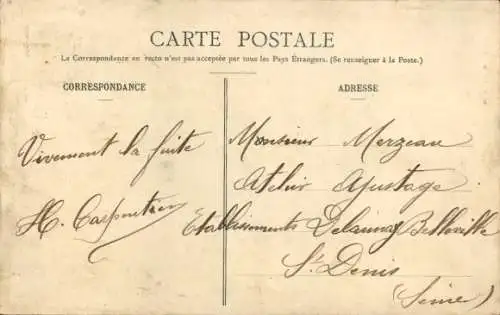 CARTE POSTALE
La Correspondance au recto n'est pas acceptée par tous les Pays Étrangers. (Se renseigner à la Poste.)
CORRESPONDANCE
ADRESSE
Vivement la fuite
H. Carpentier
Monsieur Merzeau
Atelier Ajustage
Etablissements Delaunay Belleville
St Denis
(Seine)